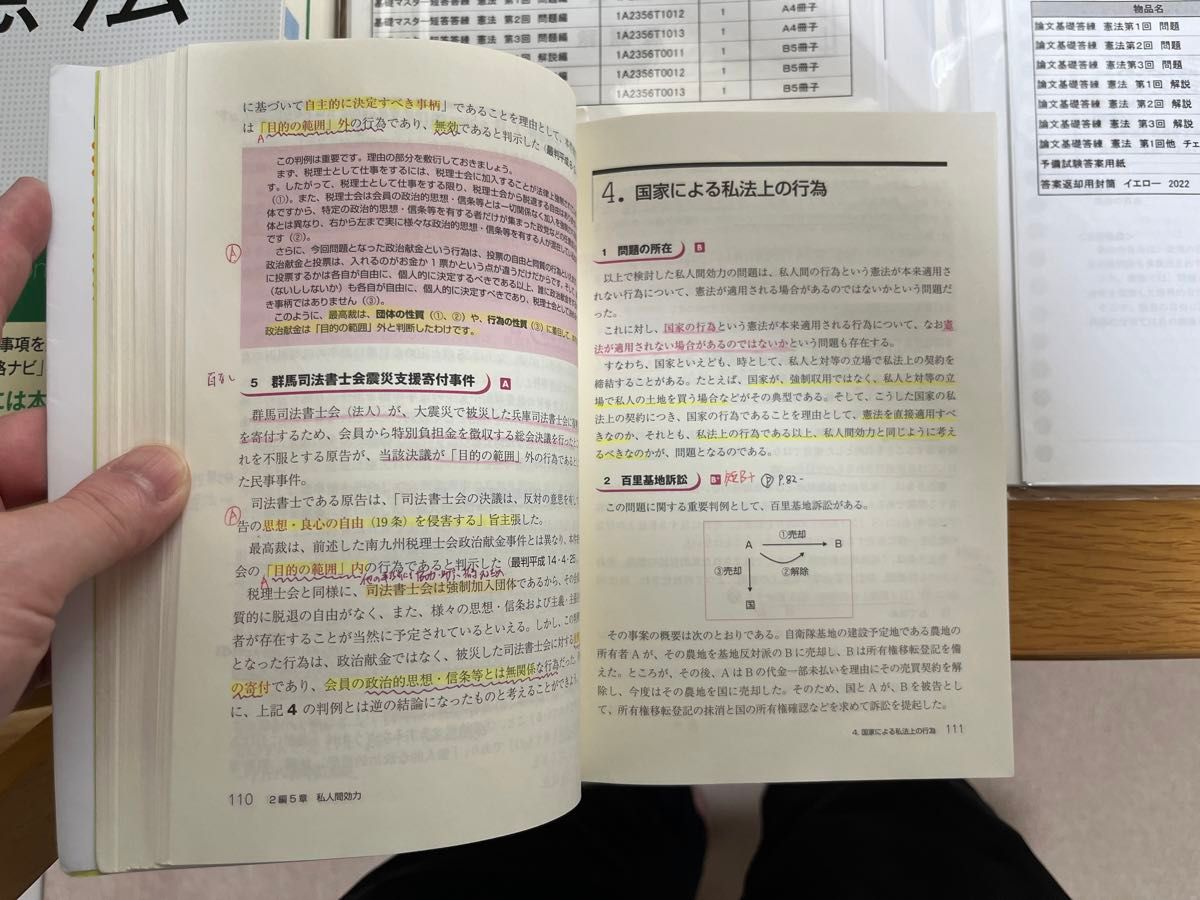 憲法
基礎マスター短答答練 憲法 第1回 問題編 1A2356T1012 A4冊子
基礎マスター短答答練 憲法 第2回 問題編 1A2356T1013 A4冊子
第3回 問題編 1A2356T0011 B5冊子
解説編 1A2356T0012 B5冊子
1A2356T0013 B5冊子
物品名
論文基礎答練 憲法第1回 問題
論文基礎答練 憲法第2回 問題
論文基礎答練 憲法第3回 問題
論文基礎答練 憲法 第1回 解説
論文基礎答練 憲法 第2回 解説
論文基礎答練 憲法 第3回 解説
論文基礎答練 憲法 第1回他 チェ
予備試験答案用紙
答案返却用封筒 イエロー 2022
事項を
ナビ」
には本
に基づいて自主的に決定すべき事柄」であることを理由として、本
は「目的の範囲」外の行為であり、無効であると判示した(最判平成8
A
この判例は重要です。理由の部分を敷衍しておきましょう。
まず、税理士として仕事をするには、税理士会に加入することが法律上強制され
す。したがって、税理士として仕事をする限り、税理士会から脱退する自由はあり
(①)。また、税理士会は会員の政治的思想・信条等とは一切関係なく加入を強制
体ですから、特定の政治的思想・信条等を有する者だけが集まった政党などの任意
体とは異なり、右から左まで実に様々な政治的思想・信条等を有する人が混在してい
です(②)。
A
さらに、今回問題となった政治献金という行為は、投票の自由と同質の行為といえ
政治献金と投票は、入れるのがお金か1票かという点が違うだけだからです。そして、
に投票するかは各自が自由に、個人的に決定するべきである以上、誰に政治献金を
(ないししないか)も各自が自由に、個人的に決定すべきであり、税理士会として
き事柄ではありません(③)。
このように、最高裁は、団体の性質(①、②)や、行為の性質(③)に着目して、
政治献金は「目的の範囲」外と判断したわけです。
5 群馬司法書士会震災支援寄付事件 A
群馬司法書士会(法人)が、大震災で被災した兵庫司法書士会に
を寄付するため、会員から特別負担金を徴収する総会決議を行った
れを不服とする原告が、当該決議が「目的の範囲」外の行為である
た民事事件。
司法書士である原告は、「司法書士会の決議は、反対の意思を有し
A
告の思想・良心の自由(19条)を侵害する」旨主張した。
最高裁は、前述した南九州税理士会政治献金事件とは異なり、本件
会の「目的の範囲」内の行為であると判示した(最判平成14・4・25)。
A
税理士会と同様に、司法書士会は強制加入団体であるから、その会
質的に脱退の自由がなく、また、様々の思想・信条および主義・主
者が存在することが当然に予定されているといえる。しかし、この判
となった行為は、政治献金ではなく、被災した司法書士会に対する
の寄付であり、会員の政治的思想・信条等とは無関係な行為だった。
に、上記4の判例とは逆の結論になったものと考えることができよう。
110 2編5章 私人間効力
4. 国家による私法上の行為
1 問題の所在 B
以上で検討した私人間効力の問題は、私人間の行為という憲法が本来適用さ
れない行為について、憲法が適用される場合があるのではないかという問題だ
った。
これに対し、国家の行為という憲法が本来適用される行為について、なお憲
法が適用されない場合があるのではないかという問題も存在する。
すなわち、国家といえども、時として、私人と対等の立場で私法上の契約を
締結することがある。たとえば、国家が、強制収用ではなく、私人と対等の立
場で私人の土地を買う場合などがその典型である。そして、こうした国家の私
法上の契約につき、国家の行為であることを理由として、憲法を直接適用すべ
きなのか、それとも、私法上の行為である以上、私人間効力と同じように考え
るべきなのかが、問題となるのである。
2 百里基地訴訟 B⁺ 短B+ P P.82-
この問題に関する重要判例として、百里基地訴訟がある。
①売却
A B
③売却 ②解除
国
その事案の概要は次のとおりである。自衛隊基地の建設予定地である農地の
所有者Aが、その農地を基地反対派のBに売却し、Bは所有権移転登記を備
えた。ところが、その後、AはBの代金一部未払いを理由にその売買契約を解
除し、今度はその農地を国に売却した。そのため、国とAが、Bを被告とし
て、所有権移転登記の抹消と国の所有権確認などを求めて訴訟を提起した。
4. 国家による私法上の行為 111